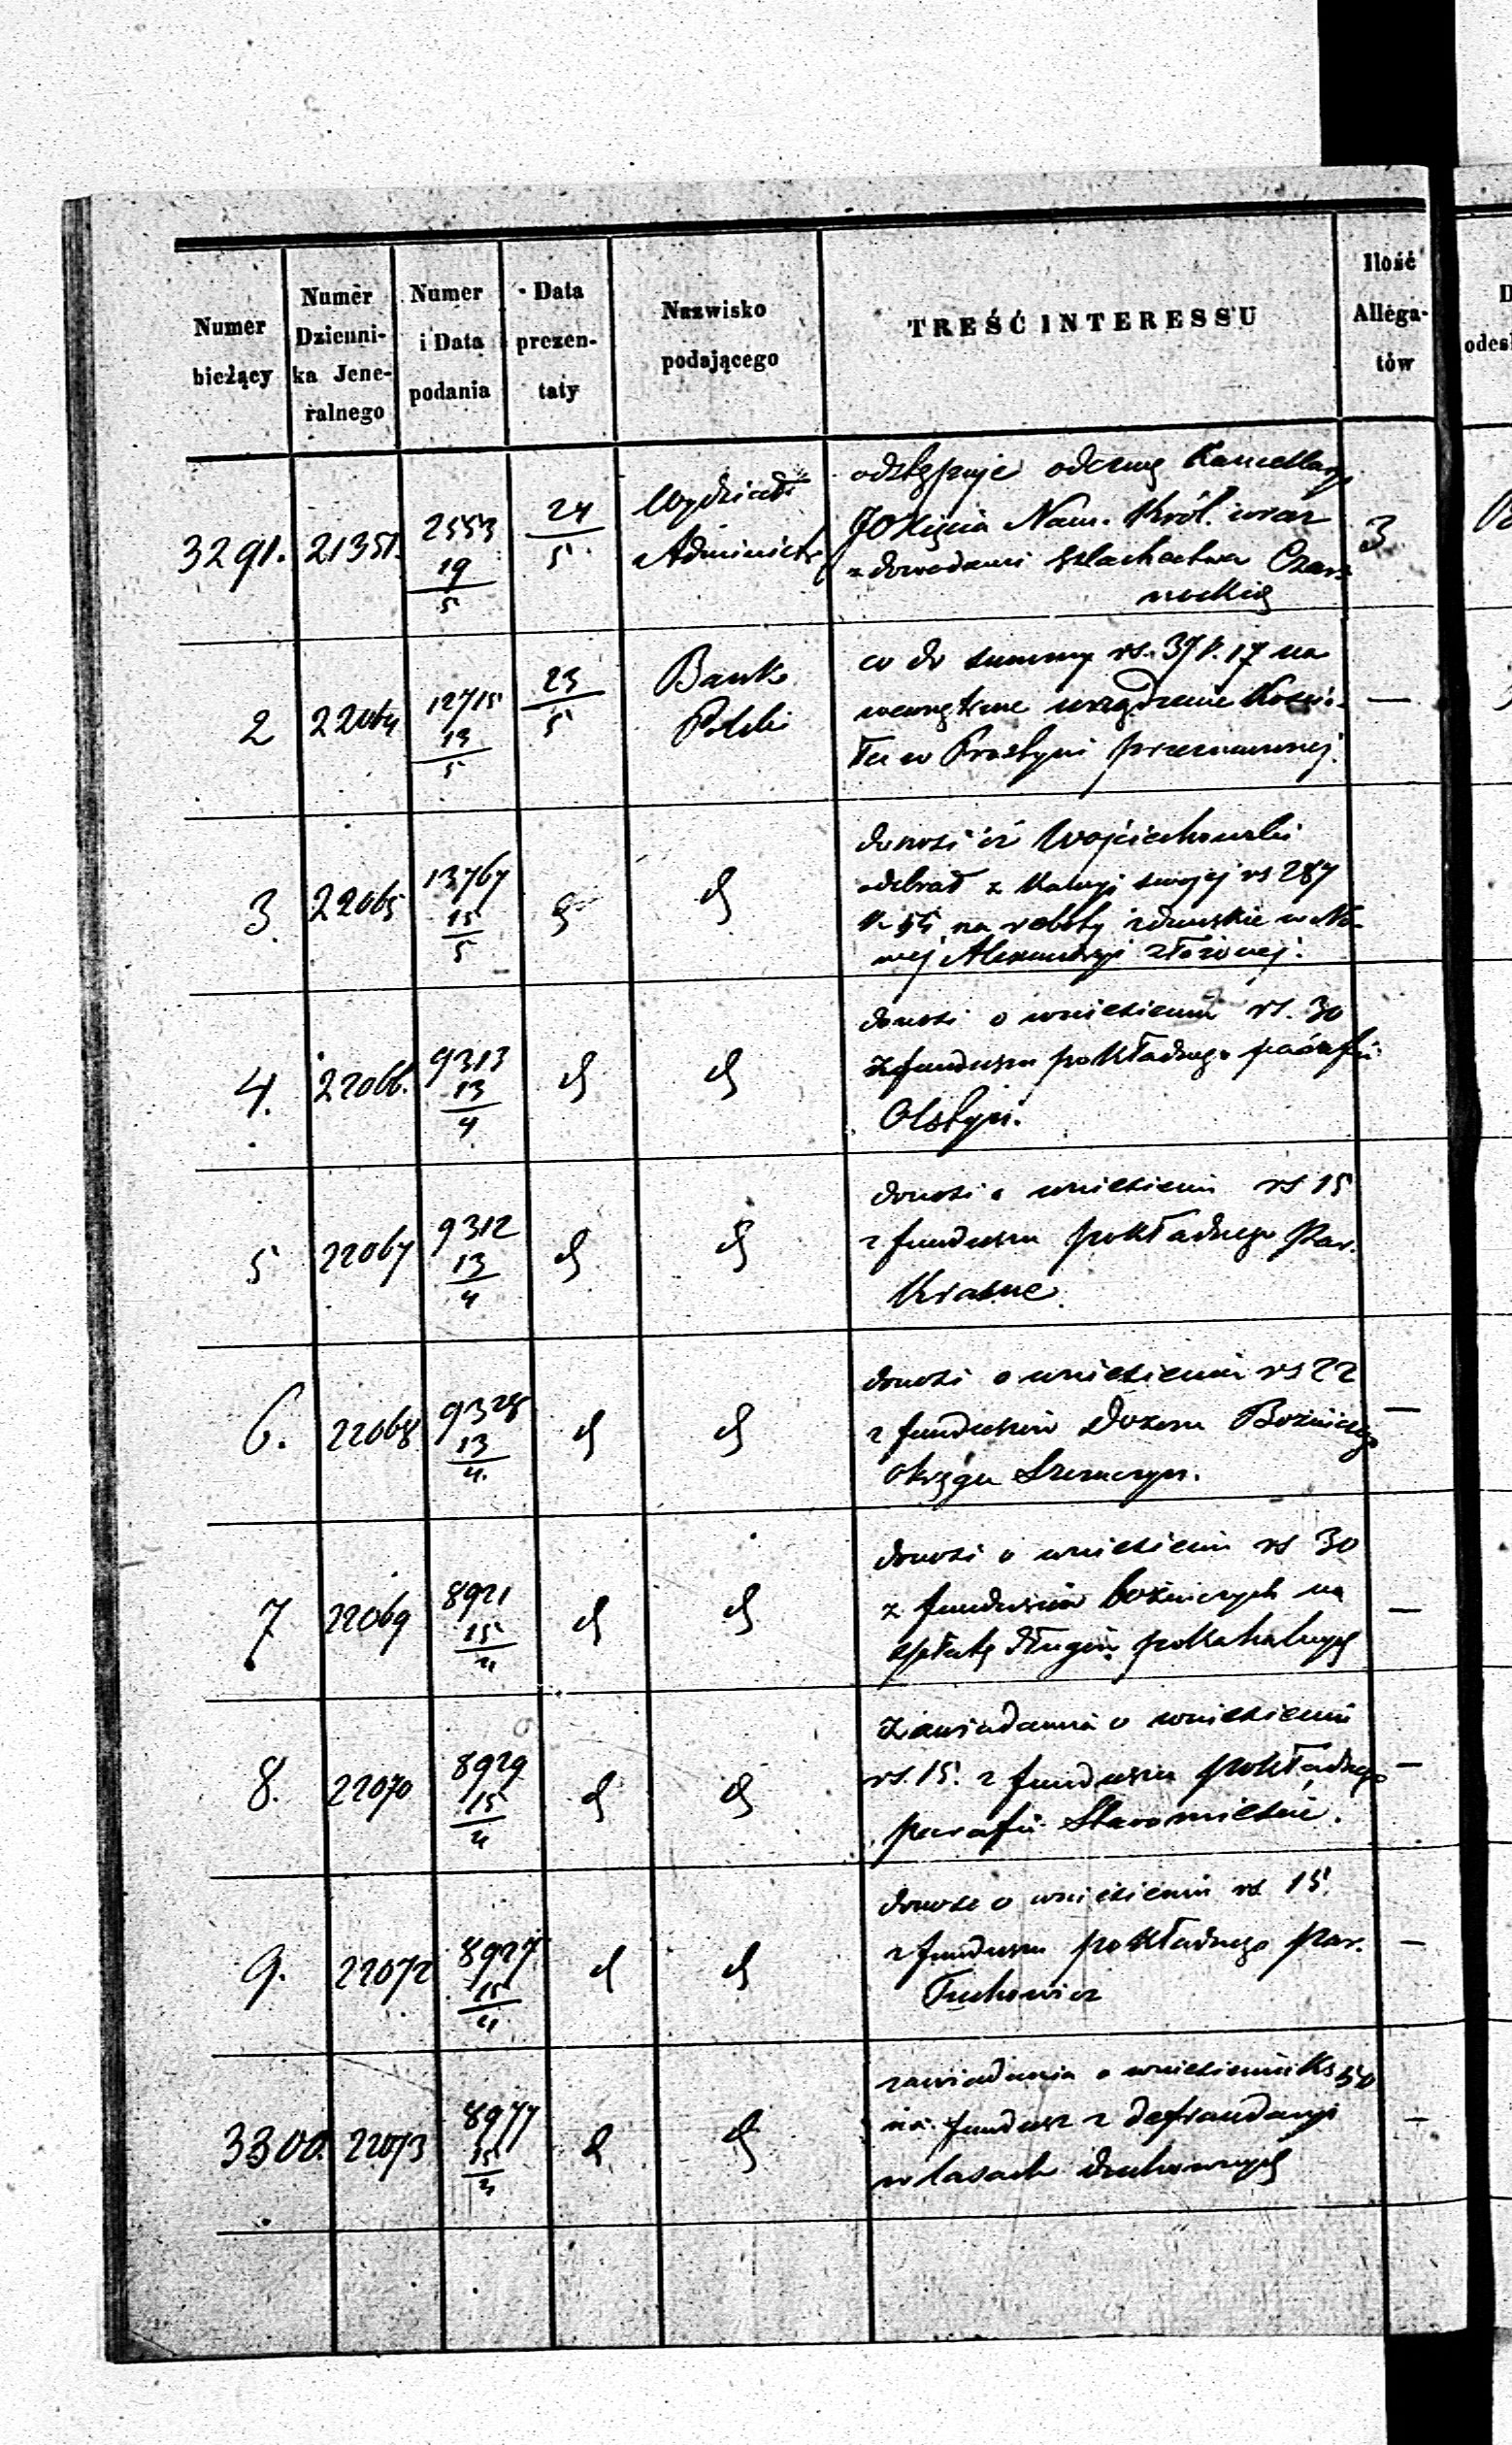 Numer bieżący
Numer Dziennika Jeneralnego
Numer i Data podania
Data prezentaty
Nazwisko podającego
TREŚĆ INTERESSU
Ilość Allegatów
3291. 21351. 2553 19/5 24/5 Wydział Administr odstępuje odezwę Kancellaryi 3
JOXięcia Nam. Król. wraz
z dowodami szlachectwa Czar-
nockich
2 22064 12715 13/5 23/5 Bank Polski co do summy rs. 37 k. 17 na —
wewnętrzne urządzenie Kościo-
ła w Prostyni przeznaczonej.
3. 22065 13767 15/5 d d donosi iż Wojciechowski
odebrał z kaucyi swojej rs 287
na roboty zduńskie w No-
wej Alexandryi złożonej.
4. 22066. 9313 13/4 d d donosi o wniesieniu rs. 30
z funduszu pokładnego parafii
Olstyn.
5 22067 9312 13/4 d d donosi o wniesieniu rs 15
z funduszu pokładnego Par.
Krasne.
6. 22068 9328 13/4. d d donosi o wniesieniu rs 22 —
z funduszów Dozoru Bóżniczego
okręgu
7 22069 8921 15/4 d d donosi o wniesieniu rs 30 —
z funduszów bóżniczych na
spłatę długów pokahalnych
8. 22070 8929 15/4 d d zawiadamia o wniesieniu —
rs. 15. z funduszu pokładnego
parafii Staromieście.
9. 22072 8927 15/4 d d donosi o wniesieniu rs 15. —
z funduszu pokładnego par.
Tuchowicz
3300. 22073 8977 15/4 d d zawiadamia o wniesieniu 50 —
na fundusz z defraudacyi
w lasach duchownych